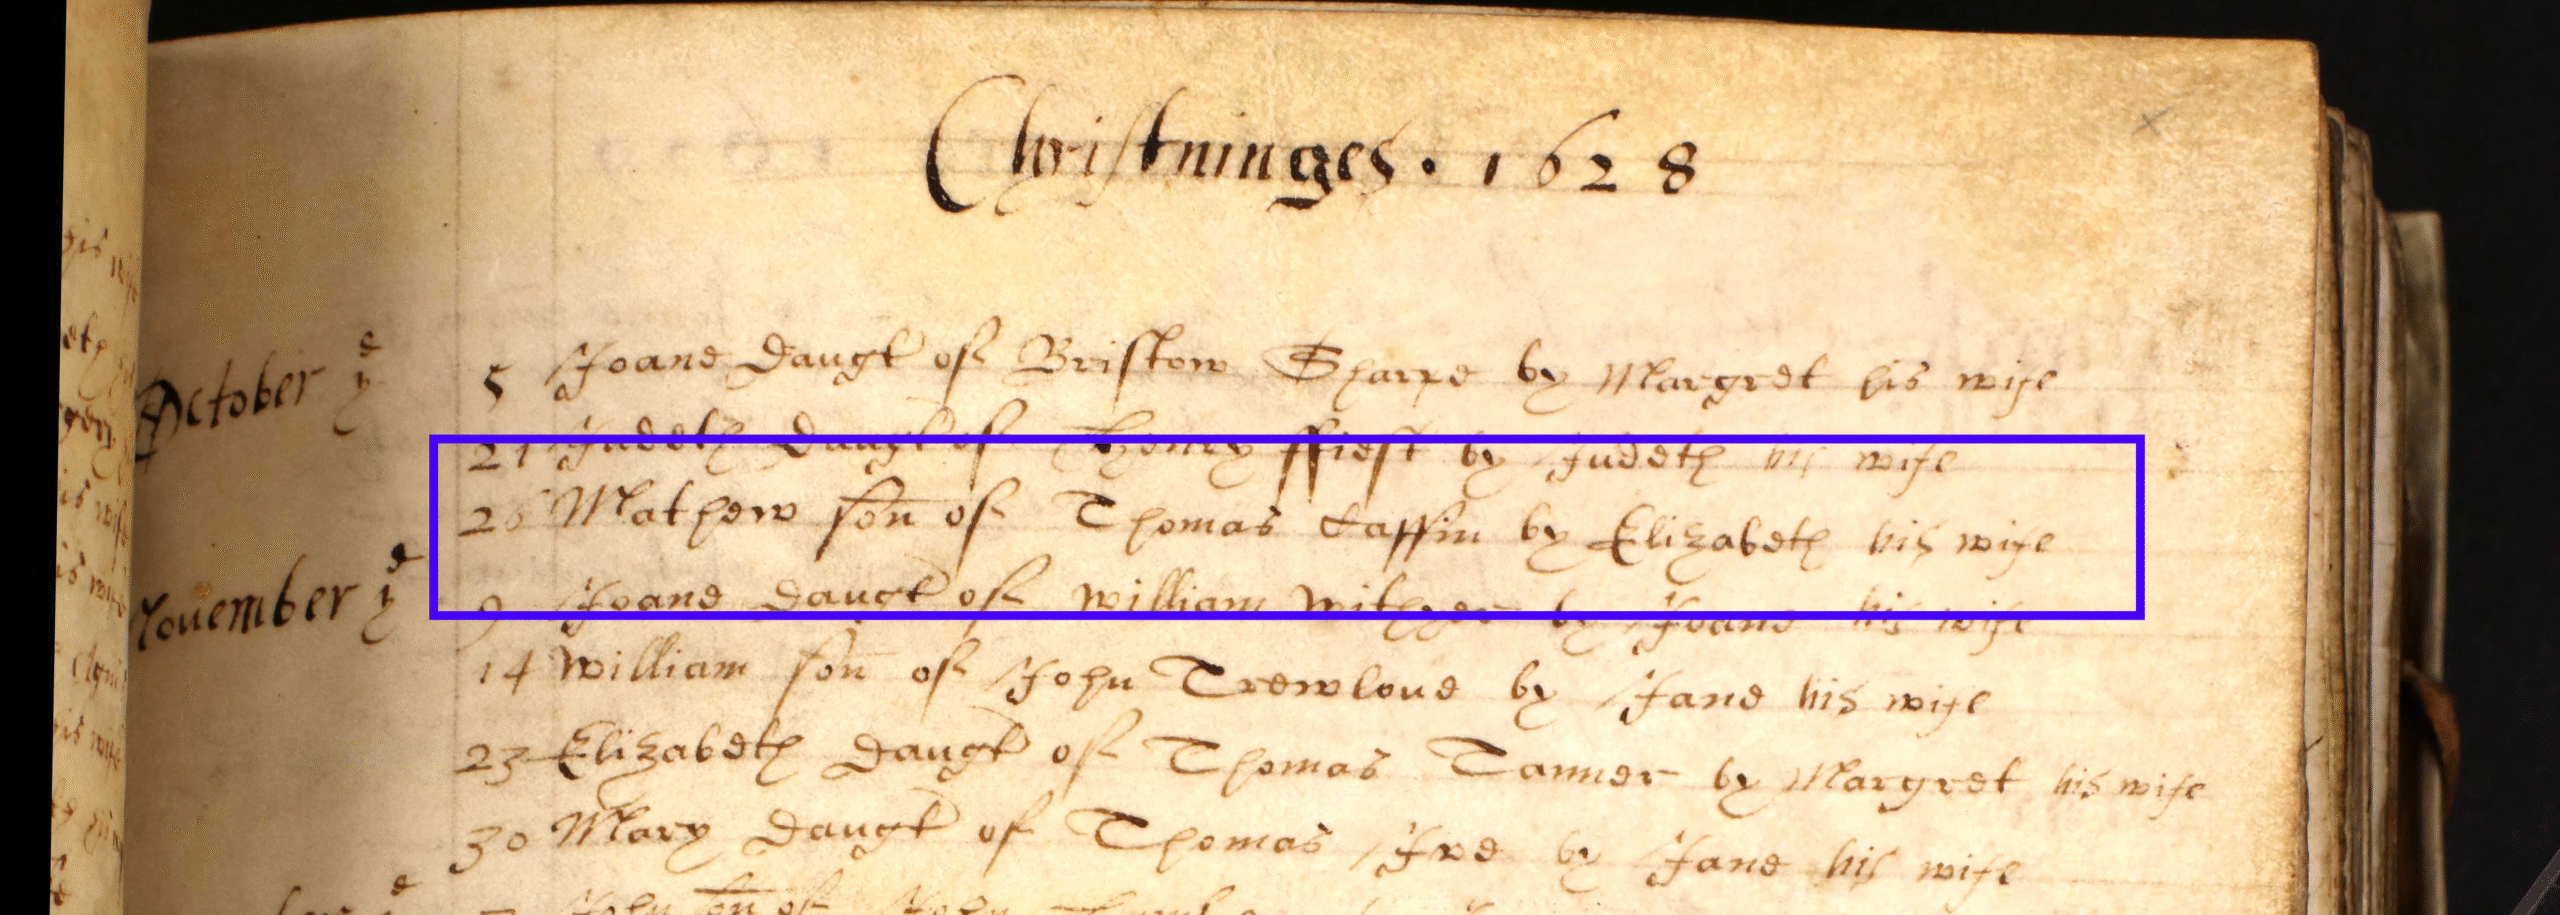 Christninges. 1628
October yᵉ 5 Joane Daugt of Bristow Sharpe by Margret his wife
21 Judeth Daugt of Henry ffiest by Judeth his wife
26 Mathew son of Thomas Caffin by Elizabeth his wife
November yᵉ 9 Joane Daugt of William by Joane his wife
14 William son of John Trewloue by Jane his wife
23 Elizabeth Daugt of Thomas Tanner by Margret his wife
30 Mary Daugt of Thomas by Jane his wife
John son of John